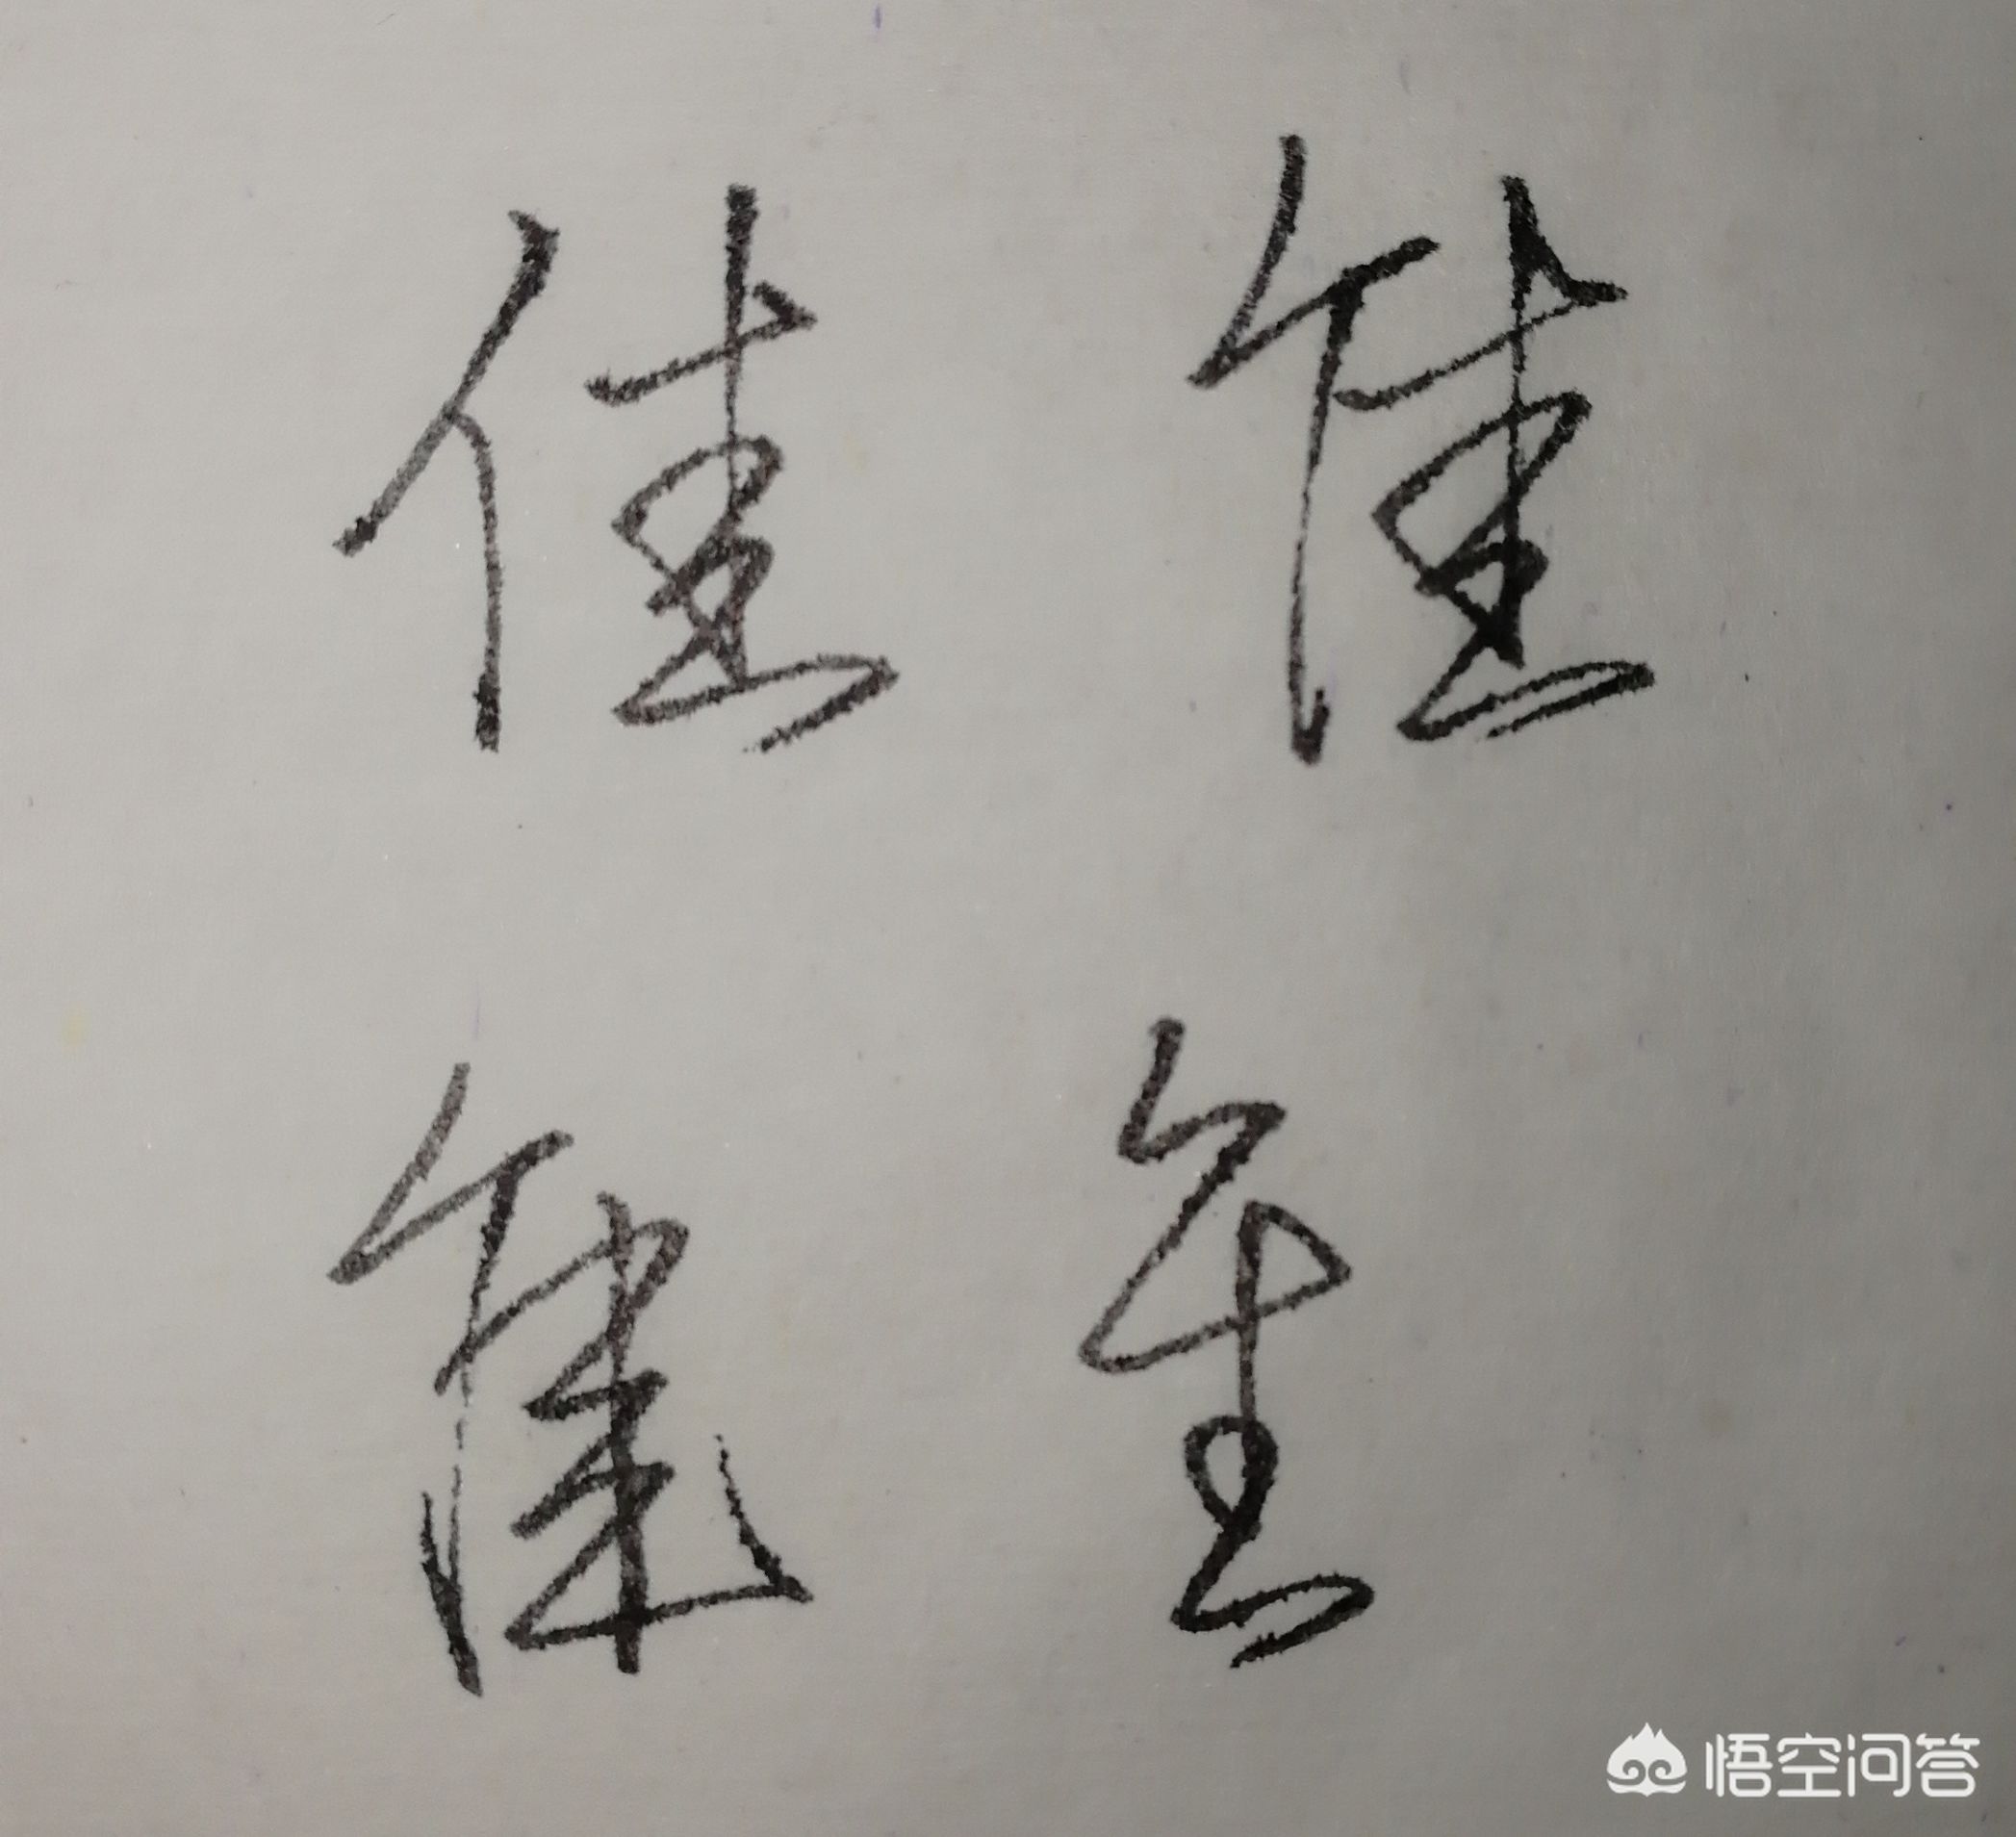 佳 佳
佳 佳
悟空问答